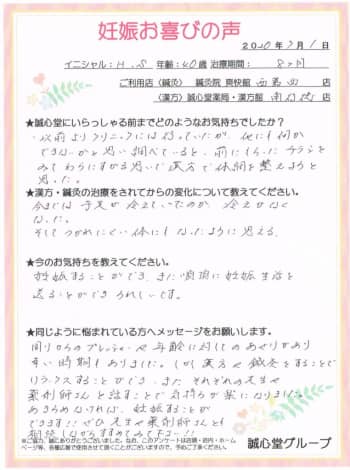 妊娠お喜びの声
2020年7月1日
イニシャル：H.S 年齢：40歳 治療期間：8ヶ月
ご利用店（鍼灸） 鍼灸院 爽快館 西葛西 店
（漢方）誠心堂薬局・漢方館 南行徳 店
★誠心堂にいらっしゃる前までどのようなお気持ちでしたか？
・以前よりクリニックには行っていたが、他にも何か
できないかと思い調べていると、前にもらったチラシを
みてわらにもすがる思いで漢方で体調を整えようと
思った。
★漢方・鍼灸の治療をされてからの変化について教えてください。
今までは手足が冷えていたのが、冷えがなく
なった。
そしてつかれにくい体にもなったように思える。
★今のお気持ちを教えてください。
妊娠することができ、また順調に妊娠生活を
送ることができうれしいです。
★同じように悩まれている方へメッセージをお願いします。
周りからのプレッシャーや年齢に対してのあせりがあり
辛い時期もありました。しかし漢方や鍼灸をすることで
リラックスすることができ、またそれぞれの先生や
薬剤師さんと話すことで気持ちが楽になりました。
あきらめなければ、妊娠することが
できます!! ぜひ先生や薬剤師さんと
相談しながらすすめてみて下さい!!
※ご協力、誠にありがとうございました。なお、このアンケートは店頭・院内・ホーム
ページ等、各種広報で使用させて頂くことがございますので、予めご了承ください。
誠心堂グループ